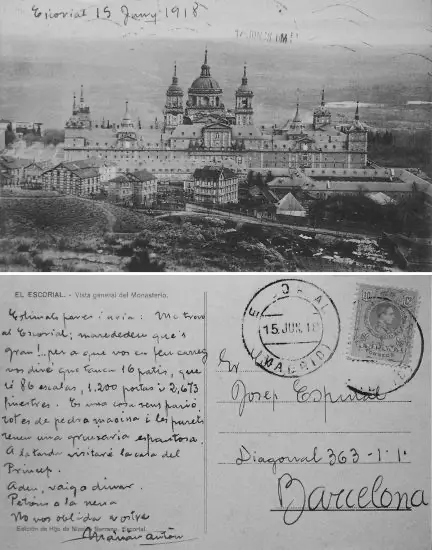 Escorial 15 Juny 1918
EL ESCORIAL. - Vista general del Monasterio.
Estimats pares i avia: Me trovo
al Escorial; maredeDeu qu'es
gran!.. per a que vos en feu carrec
vos diré que tanca 16 patis, que
té 86 escalas, 1.200 portas i 2,673
finestres. Es una cosa sens parió,
tot es de pedra masisa i les parets
tenen una gruxaria espantosa.
A la tarda visitaré la casa del
Princep.
Adeu, vaig a dinar.
Petóns a la nena
No vos oblida vostre
Edición de Hijo de Nicolás Serrano, Escorial.
15.JUN.18
(MADRID)
Sr.
Josep Espinál
Diagonal 363-1-1-
Barcelona